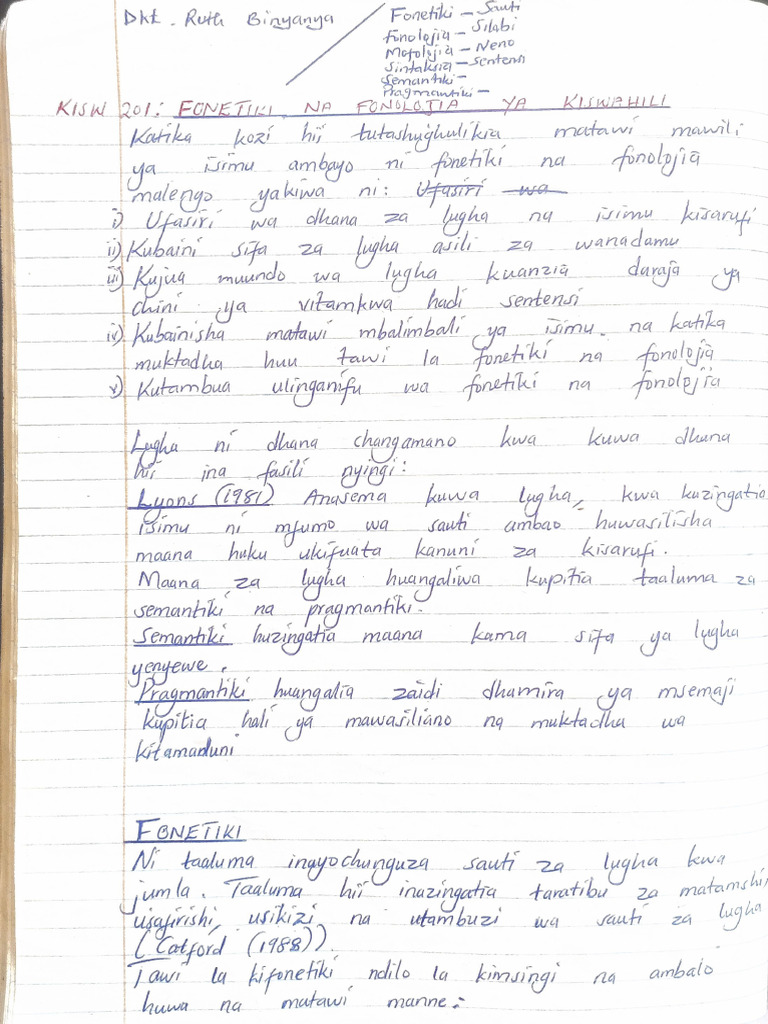 Dkt. Ruth Binyanya
Fonetiki – Sauti
Fonolojia – Silabi
Mofolojia – Neno
Sintaksia – sentensi
Semantiki –
Pragmantiki –
KISW 201: FONETIKI NA FONOLOJIA YA KISWAHILI
Katika kozi hii tutashughulikia matawi mawili
ya isimu ambayo ni fonetiki na fonolojia
malengo yakiwa ni: Ufasiri wa
i) Ufasiri wa dhana za lugha na isimu kisarufi
ii) Kubaini sifa za lugha asili za wanadamu
iii) Kujua muundo wa lugha kuanzia daraja ya
chini ya vitamkwa hadi sentensi
iv) Kubainisha matawi mbalimbali ya isimu. na katika
muktadha huu tawi la fonetiki na fonolojia
v) Kutambua ulinganifu wa fonetiki na fonolojia
Lugha ni dhana changamano kwa kuwa dhana
hii ina fasili nyingi:
Lyons (1981) Anasema kuwa lugha, kwa kuzingatia
isimu ni mfumo wa sauti ambao huwasilisha
maana huku ukifuata kanuni za kisarufi.
Maana za lugha huangaliwa kupitia taaluma za
semantiki na pragmantiki.
Semantiki huzingatia maana kama sifa ya lugha
yenyewe.
Pragmantiki huangalia zaidi dhamira ya msemaji
kupitia hali ya mawasiliano na muktadha wa
kitamaduni
FONETIKI
Ni taaluma inayochunguza sauti za lugha kwa
jumla. Taaluma hii inazingatia taratibu za matamshi,
usafirishi, usikizi na utambuzi wa sauti za lugha
(Catford (1988)).
Tawi la kifonetiki ndilo la kimsingi na ambalo
huwa na matawi manne: